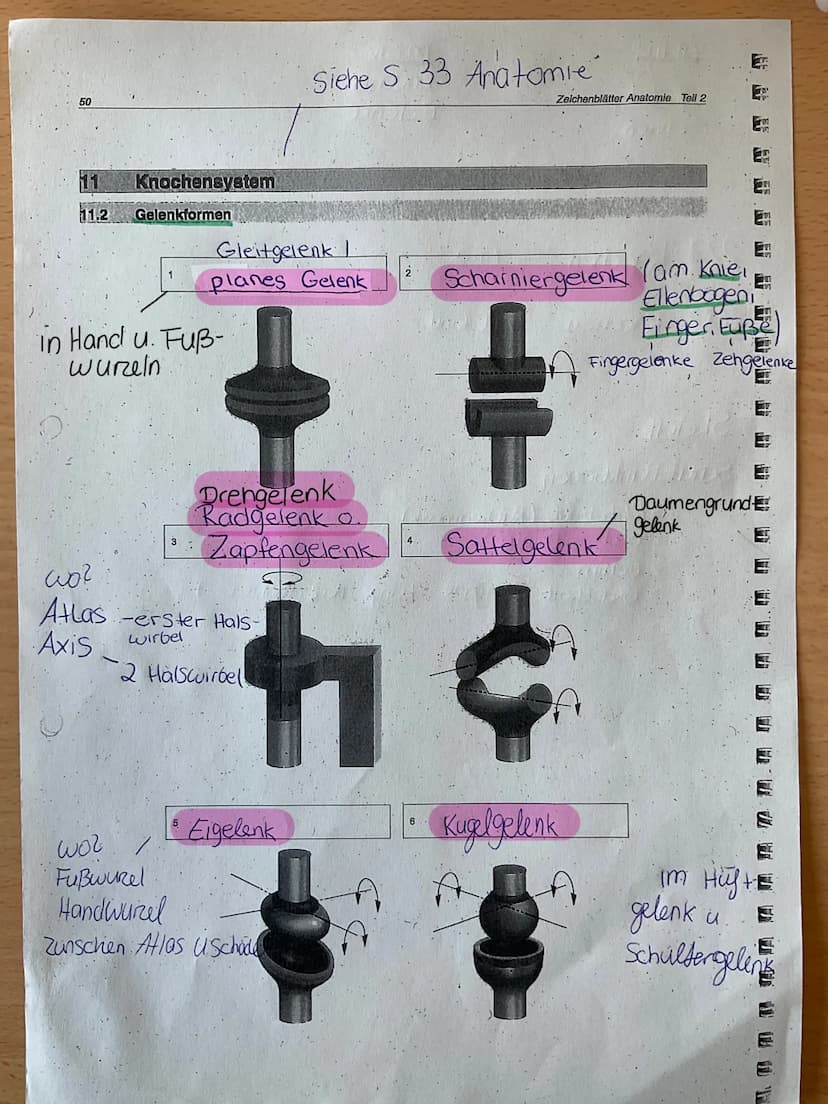 Siehe S 33 Anatomie
50
Zeichenblätter Anatomie Teil 2
11 Knochensystem
11.2 Gelenkformen
Gleitgelenk /
1 planes Gelenk
in Hand u. Fuß-
wurzeln
2 Scharniergelenk
(am Knie,
Ellenbogen,
Finger, Füße)
Fingergelenke Zehgelenke
Drehgelenk
Radgelenk o.
3 Zapfengelenk
wo?
Atlas - erster Hals-
wirbel
Axis
- 2 Halswirbel
4 Sattelgelenk
Daumengrund-
gelenk
5 Eigelenk
wo?
Fußwurzel
Handwurzel
zwischen Atlas u Schädel
6 Kugelgelenk
im Hüft
gelenk u.
Schultergelenk